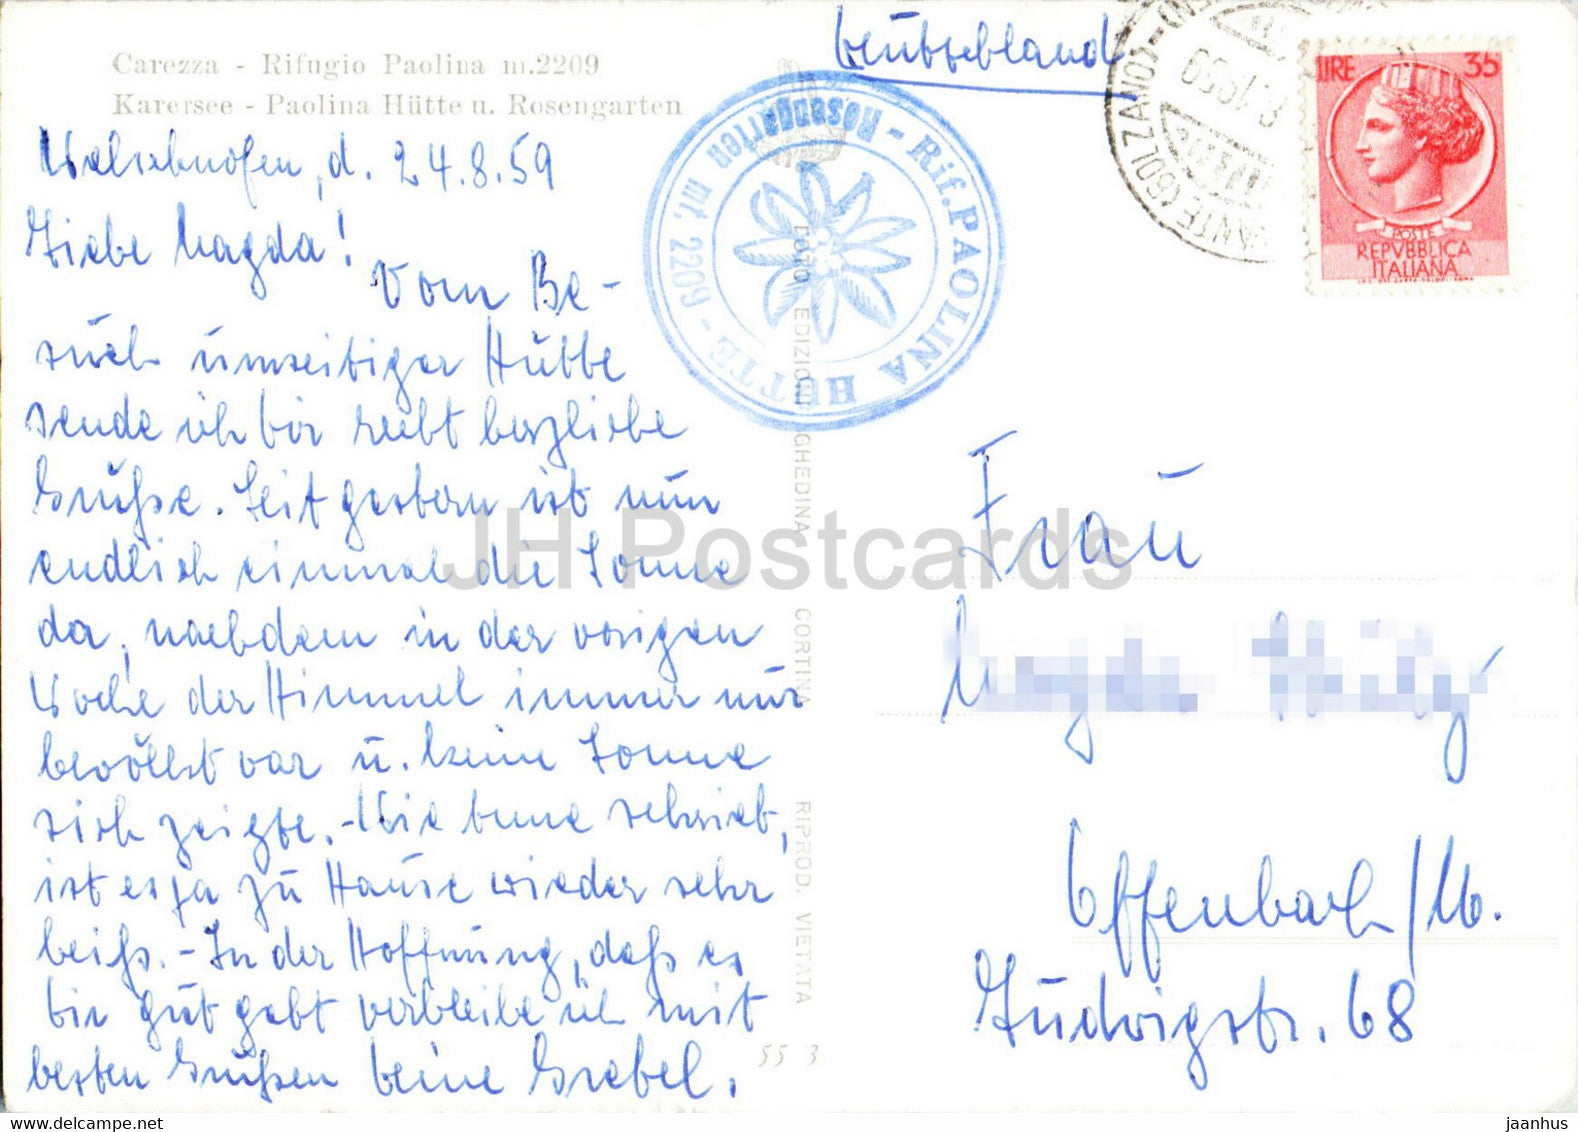 Carezza - Rifugio Paolina m.2209
Karersee - Paolina Hütte u. Rosengarten
Welschnofen, d. 24.8.59
Liebe Magda!
Vom Be-
such umseitiger Hütte
sende ich Dir recht herzliche
Grüße. Seit gestern ist nun
endlich einmal die Sonne
da, nachdem in der vorigen
Woche der Himmel immer nur
bewölkt war u. keine Sonne
sich zeigte. - Wie Anne schrieb,
ist es ja zu Hause wieder sehr
heiß. - In der Hoffnung, daß es
Dir gut geht verbleibe ich mit
besten Grüßen Deine Gretel.
55 3
FOTO EDIZIONI GHEDINA CORTINA RIPROD. VIETATA
Rif. PAOLINA HÜTTE - Rosengarten mt. 2209 -
Deutschland
(BOLZANO)
LIRE 35
POSTE
REPVBBLICA
ITALIANA
Frau
Offenbach/M.
Ludwigstr. 68
JH Postcards
jaanhus